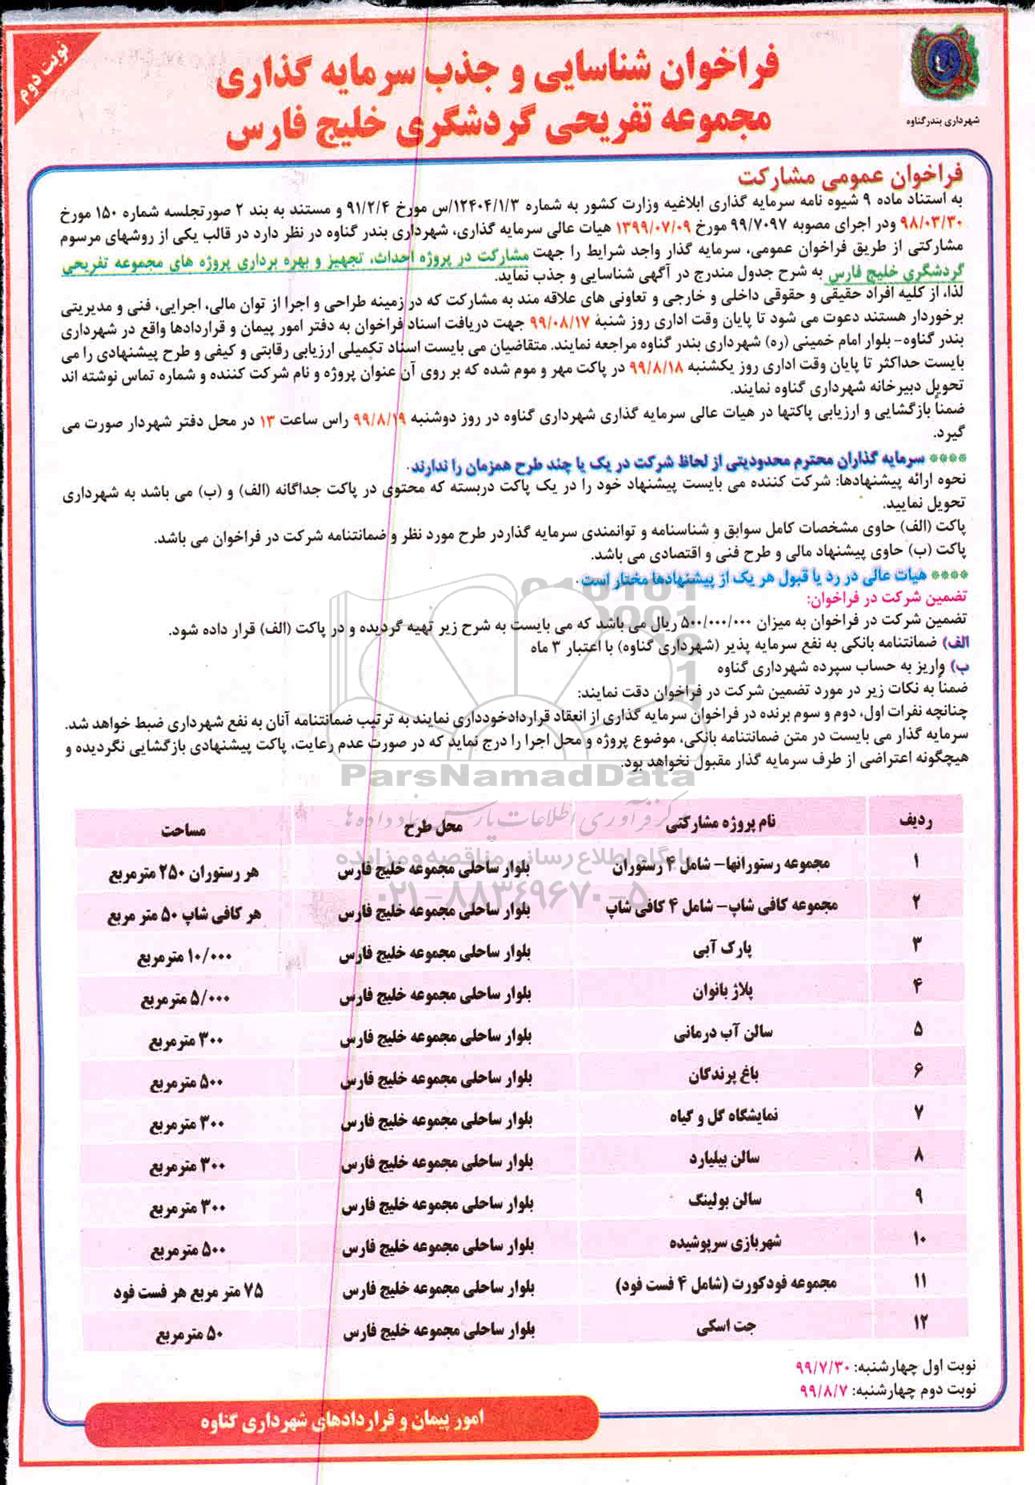 نوبت دوم
شهرداری بندرگناوه
فراخوان شناسایی و جذب سرمایه گذاری
مجموعه تفریحی گردشگری خلیج فارس
فراخوان عمومی مشارکت
به استناد ماده ۹ شیوه نامه سرمایه گذاری ابلاغیه وزارت کشور به شماره ۱۲۴۰۴/۱/۳/س مورخ ۹۱/۲/۴ و مستند به بند ۲ صورتجلسه شماره ۱۵۰ مورخ
۹۸/۰۳/۳۰ ودر اجرای مصوبه ۹۹/۷۰۹۷ مورخ ۱۳۹۹/۰۷/۰۹ هیات عالی سرمایه گذاری، شهرداری بندر گناوه در نظر دارد در قالب یکی از روشهای مرسوم
مشارکتی از طریق فراخوان عمومی، سرمایه گذار واجد شرایط را جهت مشارکت در پروژه احداث، تجهیز و بهره برداری پروژه های مجموعه تفریحی
گردشگری خلیج فارس به شرح جدول مندرج در آگهی شناسایی و جذب نماید.
لذا، از کلیه افراد حقیقی و حقوقی داخلی و خارجی و تعاونی های علاقه مند به مشارکت که در زمینه طراحی و اجرا از توان مالی، اجرایی، فنی و مدیریتی
برخوردار هستند دعوت می شود تا پایان وقت اداری روز شنبه ۹۹/۰۸/۱۷ جهت دریافت اسناد فراخوان به دفتر امور پیمان و قراردادها واقع در شهرداری
بندر گناوه- بلوار امام خمینی (ره) شهرداری بندر گناوه مراجعه نمایند. متقاضیان می بایست اسناد تکمیلی ارزیابی رقابتی و کیفی و طرح پیشنهادی را می
بایست حداکثر تا پایان وقت اداری روز یکشنبه ۹۹/۸/۱۸ در پاکت مهر و موم شده که بر روی آن عنوان پروژه و نام شرکت کننده و شماره تماس نوشته اند
تحویل دبیرخانه شهرداری گناوه نمایند.
ضمناً بازگشایی و ارزیابی پاکتها در هیات عالی سرمایه گذاری شهرداری گناوه در روز دوشنبه ۹۹/۸/۱۹ راس ساعت ۱۳ در محل دفتر شهردار صورت می
گیرد.
**** سرمایه گذاران محترم محدودیتی از لحاظ شرکت در یک یا چند طرح همزمان را ندارند.
نحوه ارائه پیشنهادها: شرکت کننده می بایست پیشنهاد خود را در یک پاکت دربسته که محتوی در پاکت جداگانه (الف) و (ب) می باشد به شهرداری
تحویل نمایید.
پاکت (الف) حاوی مشخصات کامل سوابق و شناسنامه و توانمندی سرمایه گذاردر طرح مورد نظر و ضمانتنامه شرکت در فراخوان می باشد.
پاکت (ب) حاوی پیشنهاد مالی و طرح فنی و اقتصادی می باشد.
**** هیات عالی در رد یا قبول هر یک از پیشنهادها مختار است.
تضمین شرکت در فراخوان:
تضمین شرکت در فراخوان به میزان ۵۰۰/۰۰۰/۰۰۰ ریال می باشد که می بایست به شرح زیر تهیه گردیده و در پاکت (الف) قرار داده شود.
الف) ضمانتنامه بانکی به نفع سرمایه پذیر (شهرداری گناوه) با اعتبار ۳ ماه
ب) واریز به حساب سپرده شهرداری گناوه
ضمناً به نکات زیر در مورد تضمین شرکت در فراخوان دقت نمایند:
چنانچه نفرات اول، دوم و سوم برنده در فراخوان سرمایه گذاری از انعقاد قراردادخودداری نمایند به ترتیب ضمانتنامه آنان به نفع شهرداری ضبط خواهد شد.
سرمایه گذار می بایست در متن ضمانتنامه بانکی، موضوع پروژه و محل اجرا را درج نماید که در صورت عدم رعایت، پاکت پیشنهادی بازگشایی نگردیده و
هیچگونه اعتراضی از طرف سرمایه گذار مقبول نخواهد بود.
ParsNamadData
مرکز فرآوری اطلاعات پارس نماد داده ها
پایگاه اطلاع رسانی مناقصه و مزایده
۰۲۱-۸۸۳۴۹۶۷۰-۵
ردیف نام پروژه مشارکتی محل طرح مساحت
۱ مجموعه رستورانها- شامل ۴ رستوران بلوار ساحلی مجموعه خلیج فارس هر رستوران ۲۵۰ مترمربع
۲ مجموعه کافی شاپ- شامل ۴ کافی شاپ بلوار ساحلی مجموعه خلیج فارس هر کافی شاپ ۵۰ متر مربع
۳ پارک آبی بلوار ساحلی مجموعه خلیج فارس ۱۰/۰۰۰ مترمربع
۴ پلاژ بانوان بلوار ساحلی مجموعه خلیج فارس ۵/۰۰۰ مترمربع
۵ سالن آب درمانی بلوار ساحلی مجموعه خلیج فارس ۳۰۰ مترمربع
۶ باغ پرندگان بلوار ساحلی مجموعه خلیج فارس ۵۰۰ مترمربع
۷ نمایشگاه گل و گیاه بلوار ساحلی مجموعه خلیج فارس ۳۰۰ مترمربع
۸ سالن بیلیارد بلوار ساحلی مجموعه خلیج فارس ۳۰۰ مترمربع
۹ سالن بولینگ بلوار ساحلی مجموعه خلیج فارس ۳۰۰ مترمربع
۱۰ شهربازی سرپوشیده بلوار ساحلی مجموعه خلیج فارس ۵۰۰ مترمربع
۱۱ مجموعه فودکورت (شامل ۴ فست فود) بلوار ساحلی مجموعه خلیج فارس ۷۵ متر مربع هر فست فود
۱۲ جت اسکی بلوار ساحلی مجموعه خلیج فارس ۵۰ مترمربع
نوبت اول چهارشنبه: ۹۹/۷/۳۰
نوبت دوم چهارشنبه: ۹۹/۸/۷
امور پیمان و قراردادهای شهرداری گناوه